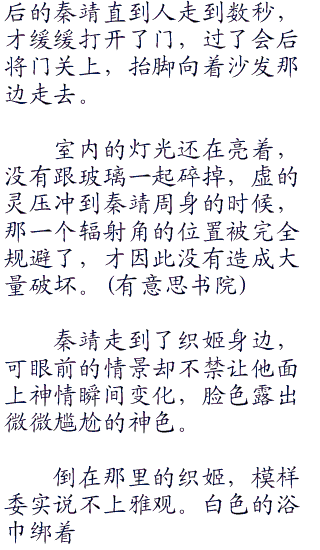 后的秦靖直到人走到数秒，
才缓缓打开了门，过了会后
将门关上，抬脚向着沙发那
边走去。
室内的灯光还在亮着，
没有跟玻璃一起碎掉，虚的
灵压冲到秦靖周身的时候，
那一个辐射角的位置被完全
规避了，才因此没有造成大
量破坏。(有意思书院)
秦靖走到了织姬身边，
可眼前的情景却不禁让他面
上神情瞬间变化，脸色露出
微微尴尬的神色。
倒在那里的织姬，模样
委实说不上雅观。白色的浴
巾绑着